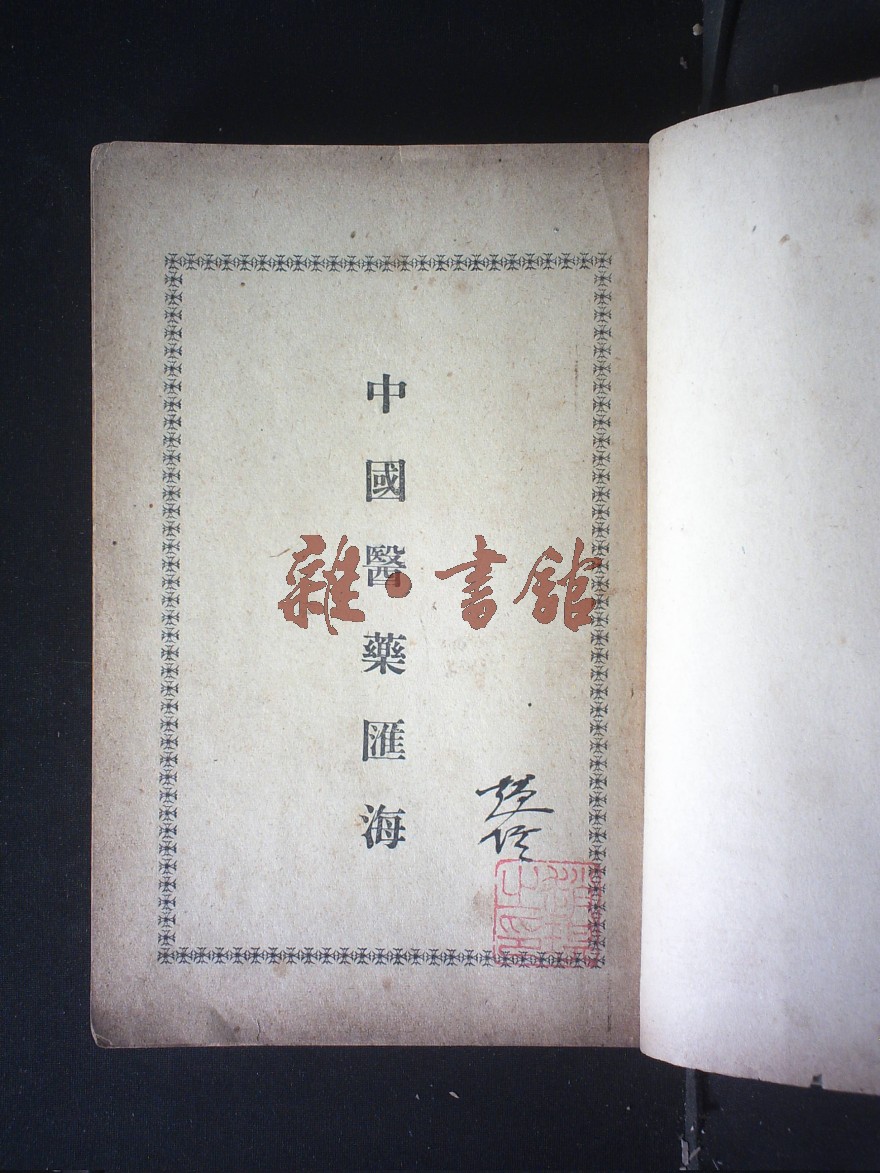 中國醫藥匯海
雜·書館